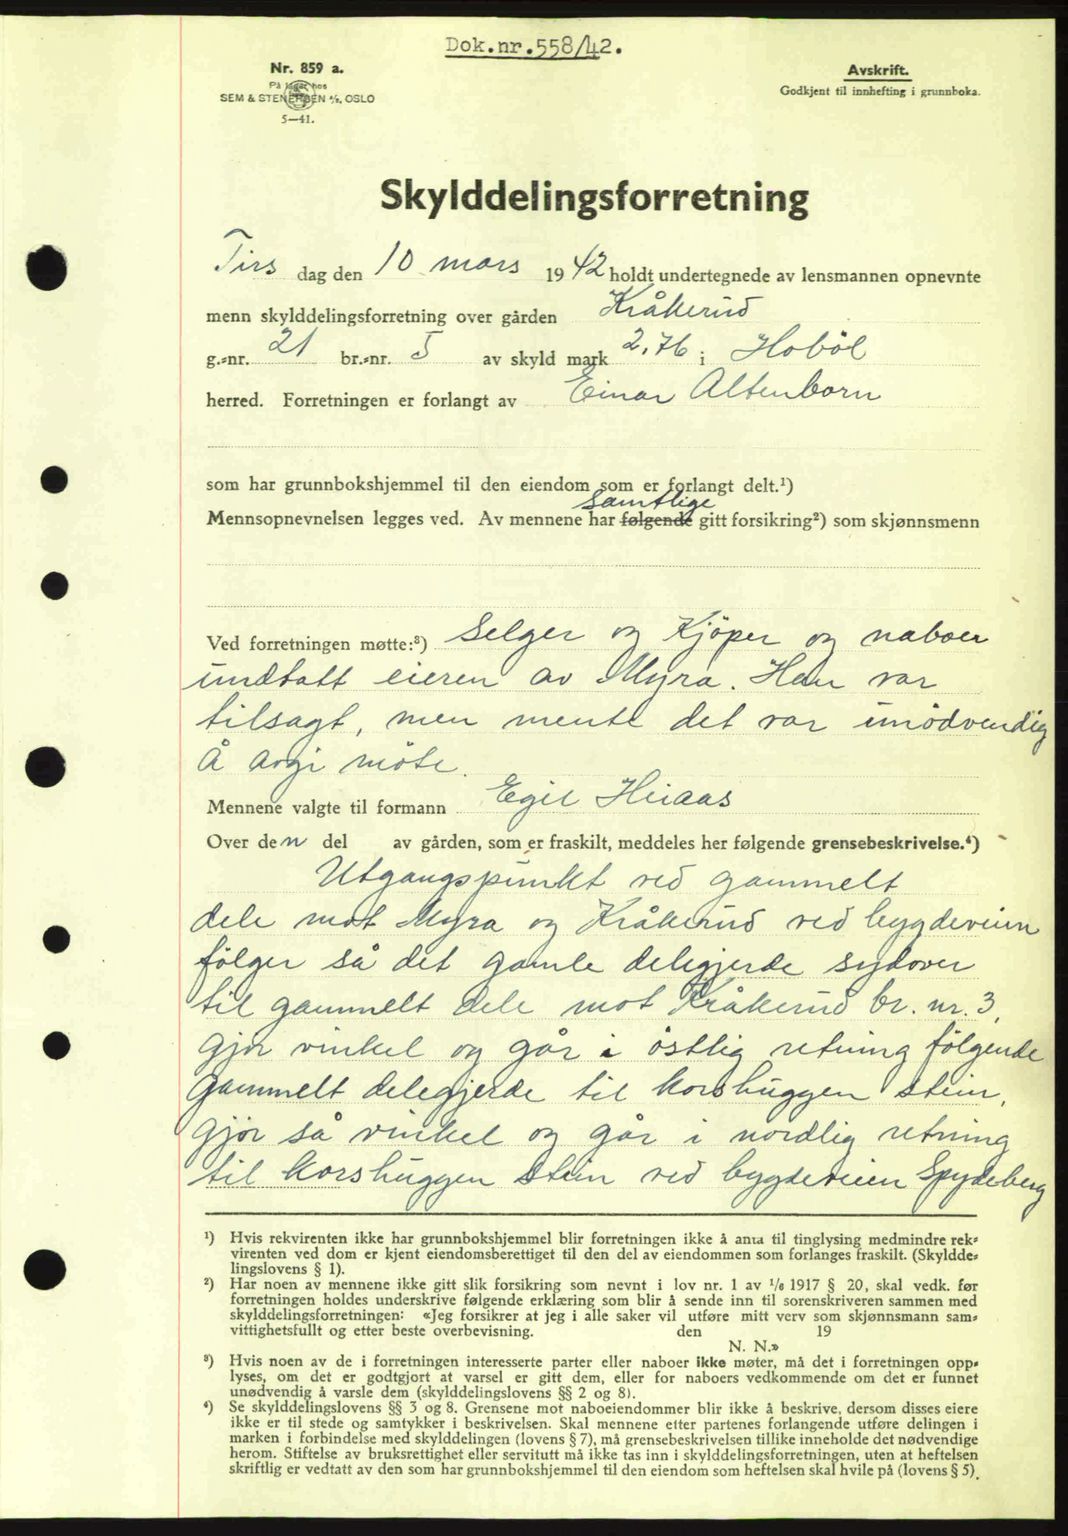 Dok.nr.558/42.
Nr. 859 a.
På lager hos
SEM & STENERSEN A/S, OSLO
5—41.
Avskrift.
Godkjent til innhefting i grunnboka.
Skylddelingsforretning
Tirs dag den 10 mars 1942 holdt undertegnede av lensmannen opnevnte
menn skylddelingsforretning over gården Kråkerud
g.-nr. 21 br.-nr. 5 av skyld mark 2,76 i Hobøl
herred. Forretningen er forlangt av Einar Altenborn
som har grunnbokshjemmel til den eiendom som er forlangt delt.¹)
samtlige
Mennsopnevnelsen legges ved. Av mennene har følgende gitt forsikring²) som skjønnsmenn
Ved forretningen møtte:³) Selger og Kjöper og naboer
undtatt eieren av Myra. Han var
tilsagt, men mente det var unödvendig
å avgi möte.
Mennene valgte til formann Egil Heiaas
Over den del av gården, som er fraskilt, meddeles her følgende grensebeskrivelse.⁴)
Utgangspunkt ved gammelt
dele mot Myra og Kråkerud ved bygdeveien
fölger så det gamle delegjerde sydover
til gammelt dele mot Kråkerud br. nr. 3,
gjör vinkel og går i östlig retning fölgende
gammelt delegjerde til korshuggen stein,
gjör så vinkel og går i nordlig retning
til korshuggen stein ved bygdeveien Spydeberg
¹) Hvis rekvirenten ikke har grunnbokshjemmel blir forretningen ikke å anta til tinglysing medmindre rek-
virenten ved dom er kjent eiendomsberettiget til den del av eiendommen som forlanges fraskilt. (Skyldde-
lingslovens § 1).
²) Har noen av mennene ikke gitt slik forsikring som nevnt i lov nr. 1 av 1/6 1917 § 20, skal vedk. før
forretningen holdes underskrive følgende erklæring som blir å sende inn til sorenskriveren sammen med
skylddelingsforretningen: «Jeg forsikrer at jeg i alle saker vil utføre mitt verv som skjønnsmann sam-
vittighetsfullt og etter beste overbevisning. den 19
N. N.»
³) Hvis noen av de i forretningen interesserte parter eller naboer ikke møter, må det i forretningen opp-
lyses, om det er godtgjort at varsel er gitt dem, eller for naboers vedkommende om det er funnet
unødvendig å varsle dem (skylddelingslovens §§ 2 og 8).
⁴) Se skylddelingslovens §§ 3 og 8. Grensene mot naboeiendommer blir ikke å beskrive, dersom disses eiere
ikke er til stede og samtykker i beskrivelsen. Skal mennene etter partenes forlangende utføre delingen i
marken i forbindelse med skylddelingen (lovens § 7), må grensebeskrivelsen tillike inneholde det nødvendige
herom. Stiftelse av bruksrettighet eller servitutt må ikke tas inn i skylddelingsforretningen, uten at heftelsen
skriftlig er vedtatt av den som har grunnbokshjemmel til den eiendom som heftelsen skal hvile på (lovens § 5).